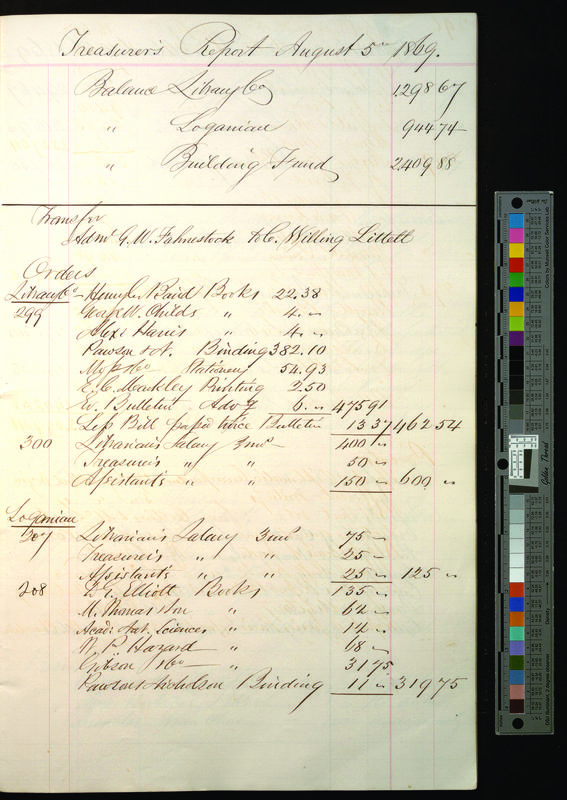 Treasurer's Report August 5th 1869.
Balance Library Co 1298 67
" Loganian 944 74
" Building Fund 2409 88
Transfer
Adm. G. W. Fahnestock to C. Willing Littell
Orders
Library Co Henry C. Baird Books 22.38
299 Geo. W. Childs " 4. "
Alex. Harris " 4. "
Pawson & N. Binding 382.10
Stationery 54.93
E. C. Markley Printing 2.50
Ev. Bulletin Adv'g 6. " 475 91
Less Bill paid twice Bulletin 13 37 462 54
300 Librarian's Salary 3 mos 400 "
Treasurer's " " 50 "
Assistant's " " 150 " 600 "
Loganian
207 Librarian's Salary 3 mos 75 "
Treasurer's " " 25 "
Assistant's " " 25 " 125 "
208 D. G. Elliott Books 135 "
M. Thomas & Son " 62 "
Acad. Nat. Sciences " 12 "
W. P. Hazard " 68 "
Gibson & Co " 31 75
Pawson & Nicholson Binding 11 " 319 75